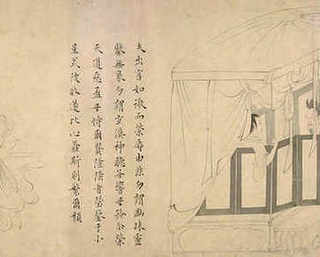 夫出言如微而榮辱由茲勿謂幽昧靈
鑒無象勿謂玄漠神聽無響無矜尔榮
天道惡盈無恃爾貴隆隆者墜鑒于小
星戒彼攸遂比心螽斯則繁爾類